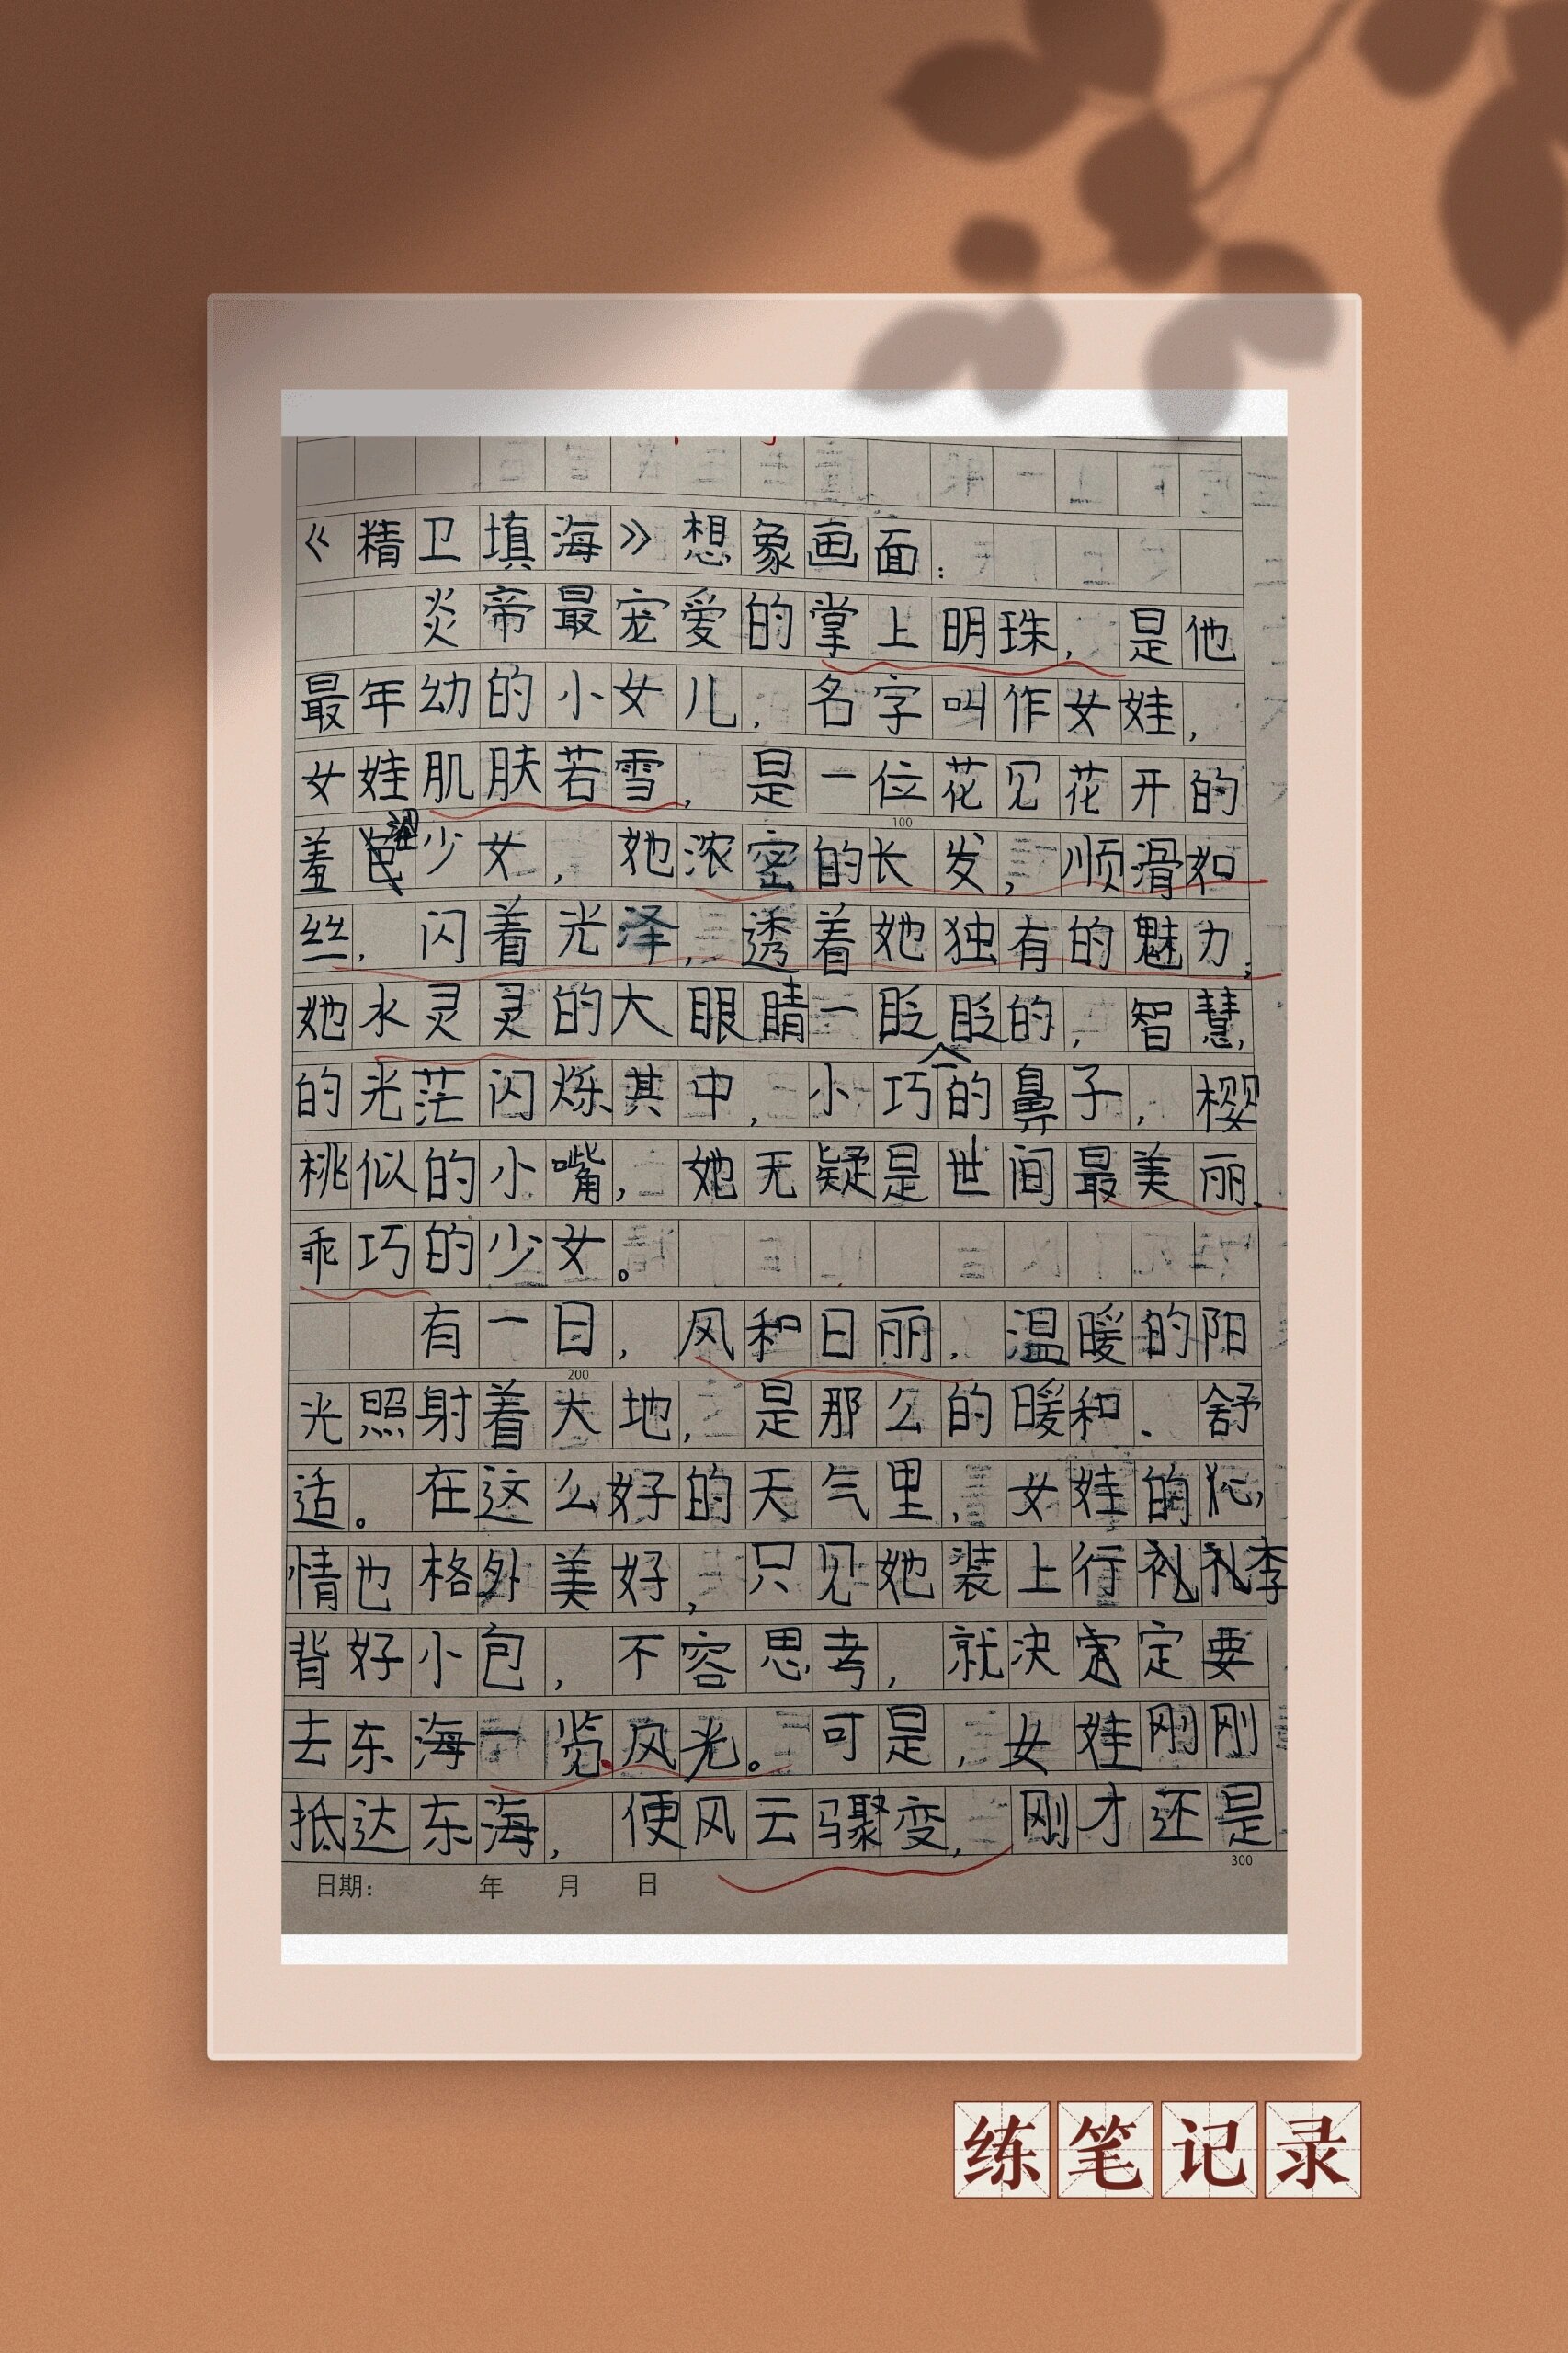 《精卫填海》想象画面：
炎帝最宠爱的掌上明珠，是他
最年幼的小女儿，名字叫作女娃，
女娃肌肤若雪，是一位花见花开的
100
羞涩少女，她浓密的长发，顺滑如
丝，闪着光泽，透着她独有的魅力；
她水灵灵的大眼睛一眨眨的，智慧
的光茫闪烁其中，小巧的鼻子，樱
桃似的小嘴，她无疑是世间最美丽、
乖巧的少女。
有一日，风和日丽，温暖的阳
200
光照射着大地，是那么的暖和、舒
适。在这么好的天气里，女娃的心
情也格外美好，只见她装上行李
背好小包，不容思考，就决定要
去东海一览风光。可是，女娃刚刚
抵达东海，便风云骤变，刚才还是
300
日期： 年 月 日
练笔记录